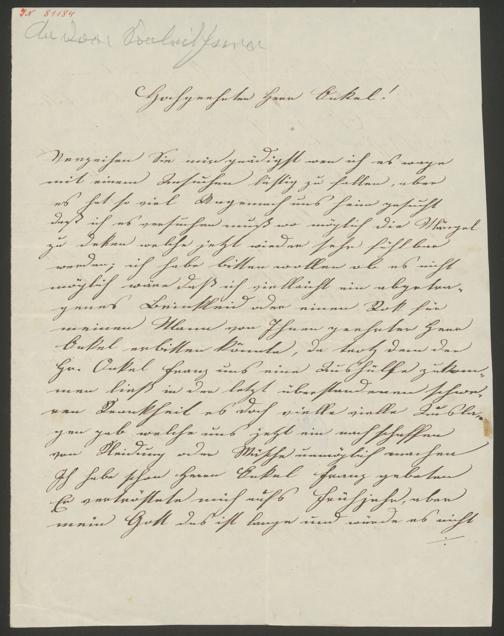 IN 81184
Hochgeehrter Herr Onkel!
Verzeihen Sie mir gnädigst wen ich es wage
mit einem Ansuchen lästig zu fallen, aber
es hat so viel Ungemach uns heim gesucht
daß ich es versuchen muß wo möglich die Mängel
zu deken welche jetzt wieder sehr fühlbar
werden; ich habe bitten wollen ob es nicht
möglich wäre daß ich vielleicht ein abgetra-
genes Beinkleid oder einen Rok für
meinen Mann von Ihnen geehrter Herr
Onkel erbitten könnte, da trotz dem der
Hr. Onkel Franz uns eine Aushülfe zukom-
men ließ in der letzt überstandenen schwe-
ren Krankheit es doch vielle vielle Ausla-
gen gab welche uns jetzt ein nachschaffen
von Kleidung oder Wäsche unmöglich machen
Ich habe schon Herrn Onkel Franz gebeten
Er vertröstete mich aufs Frühjahr, aber
mein Gott das ist lange und würde es nicht